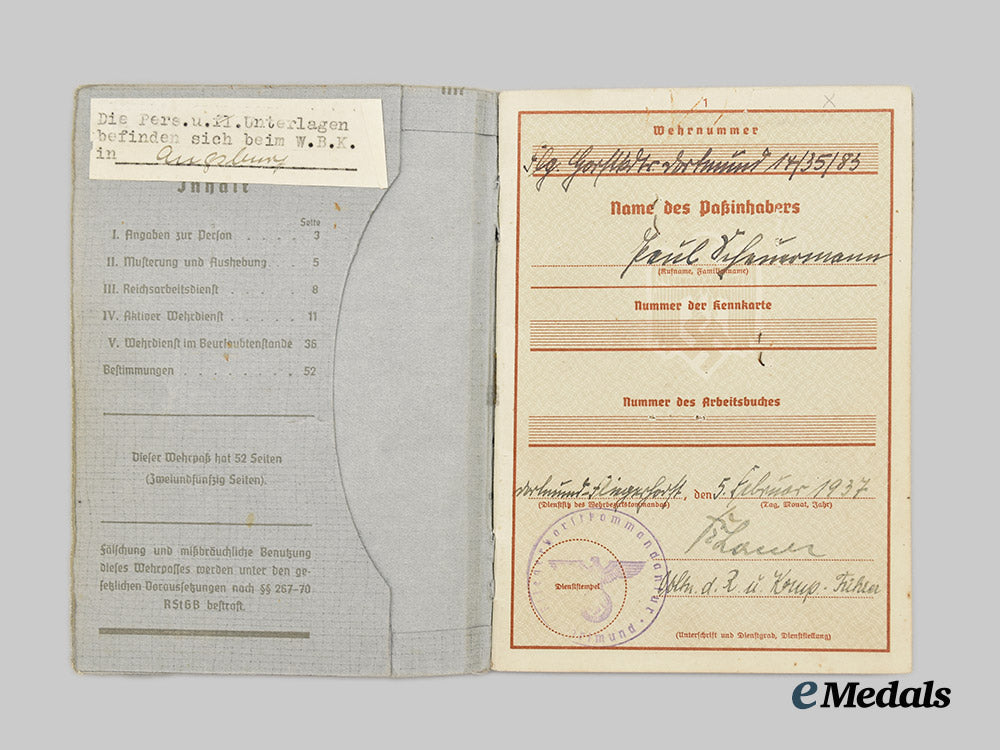 Die Pers.u.H.Unterlagen
befinden sich beim W.B.K.
in Augsburg
Inhalt
Seite
I. Angaben zur Person . . . . 3
II. Musterung und Aushebung . . . . 5
III. Reichsarbeitsdienst . . . . . 8
IV. Aktiver Wehrdienst . . . . . 11
V. Wehrdienst im Beurlaubtenstande 36
Bestimmungen . . . . . . . . 52
Dieser Wehrpaß hat 52 Seiten
(Zweiundfünfzig Seiten).
Fälschung und mißbräuchliche Benutzung
dieses Wehrpasses werden unter den ge-
setzlichen Voraussetzungen nach §§ 267-70
RStGB bestraft.
1
Wehrnummer
Dortmund 14/35/83
Name des Paßinhabers
Paul Scheuermann
(Rufname, Familienname)
Nummer der Kennkarte
Nummer des Arbeitsbuches
Dortmund-Fliegerhorst, den 5. Februar 1937
(Dienstsitz des Wehrbezirkskommandos) (Tag, Monat, Jahr)
Dienststempel
d. R. u. Komp.-Führer
(Unterschrift und Dienstgrad, Dienststellung)
eMedals